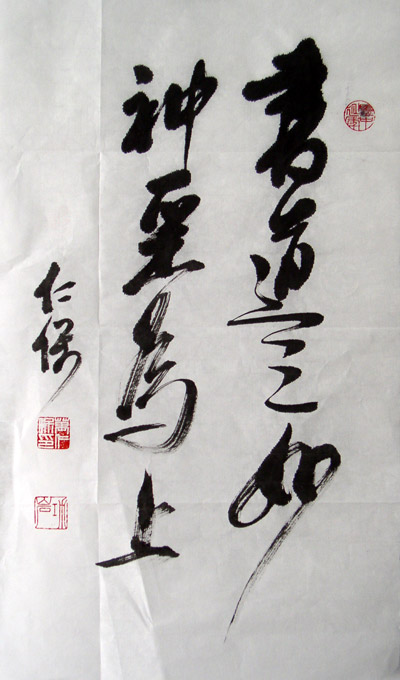 書道之妙
神采為上
仁保